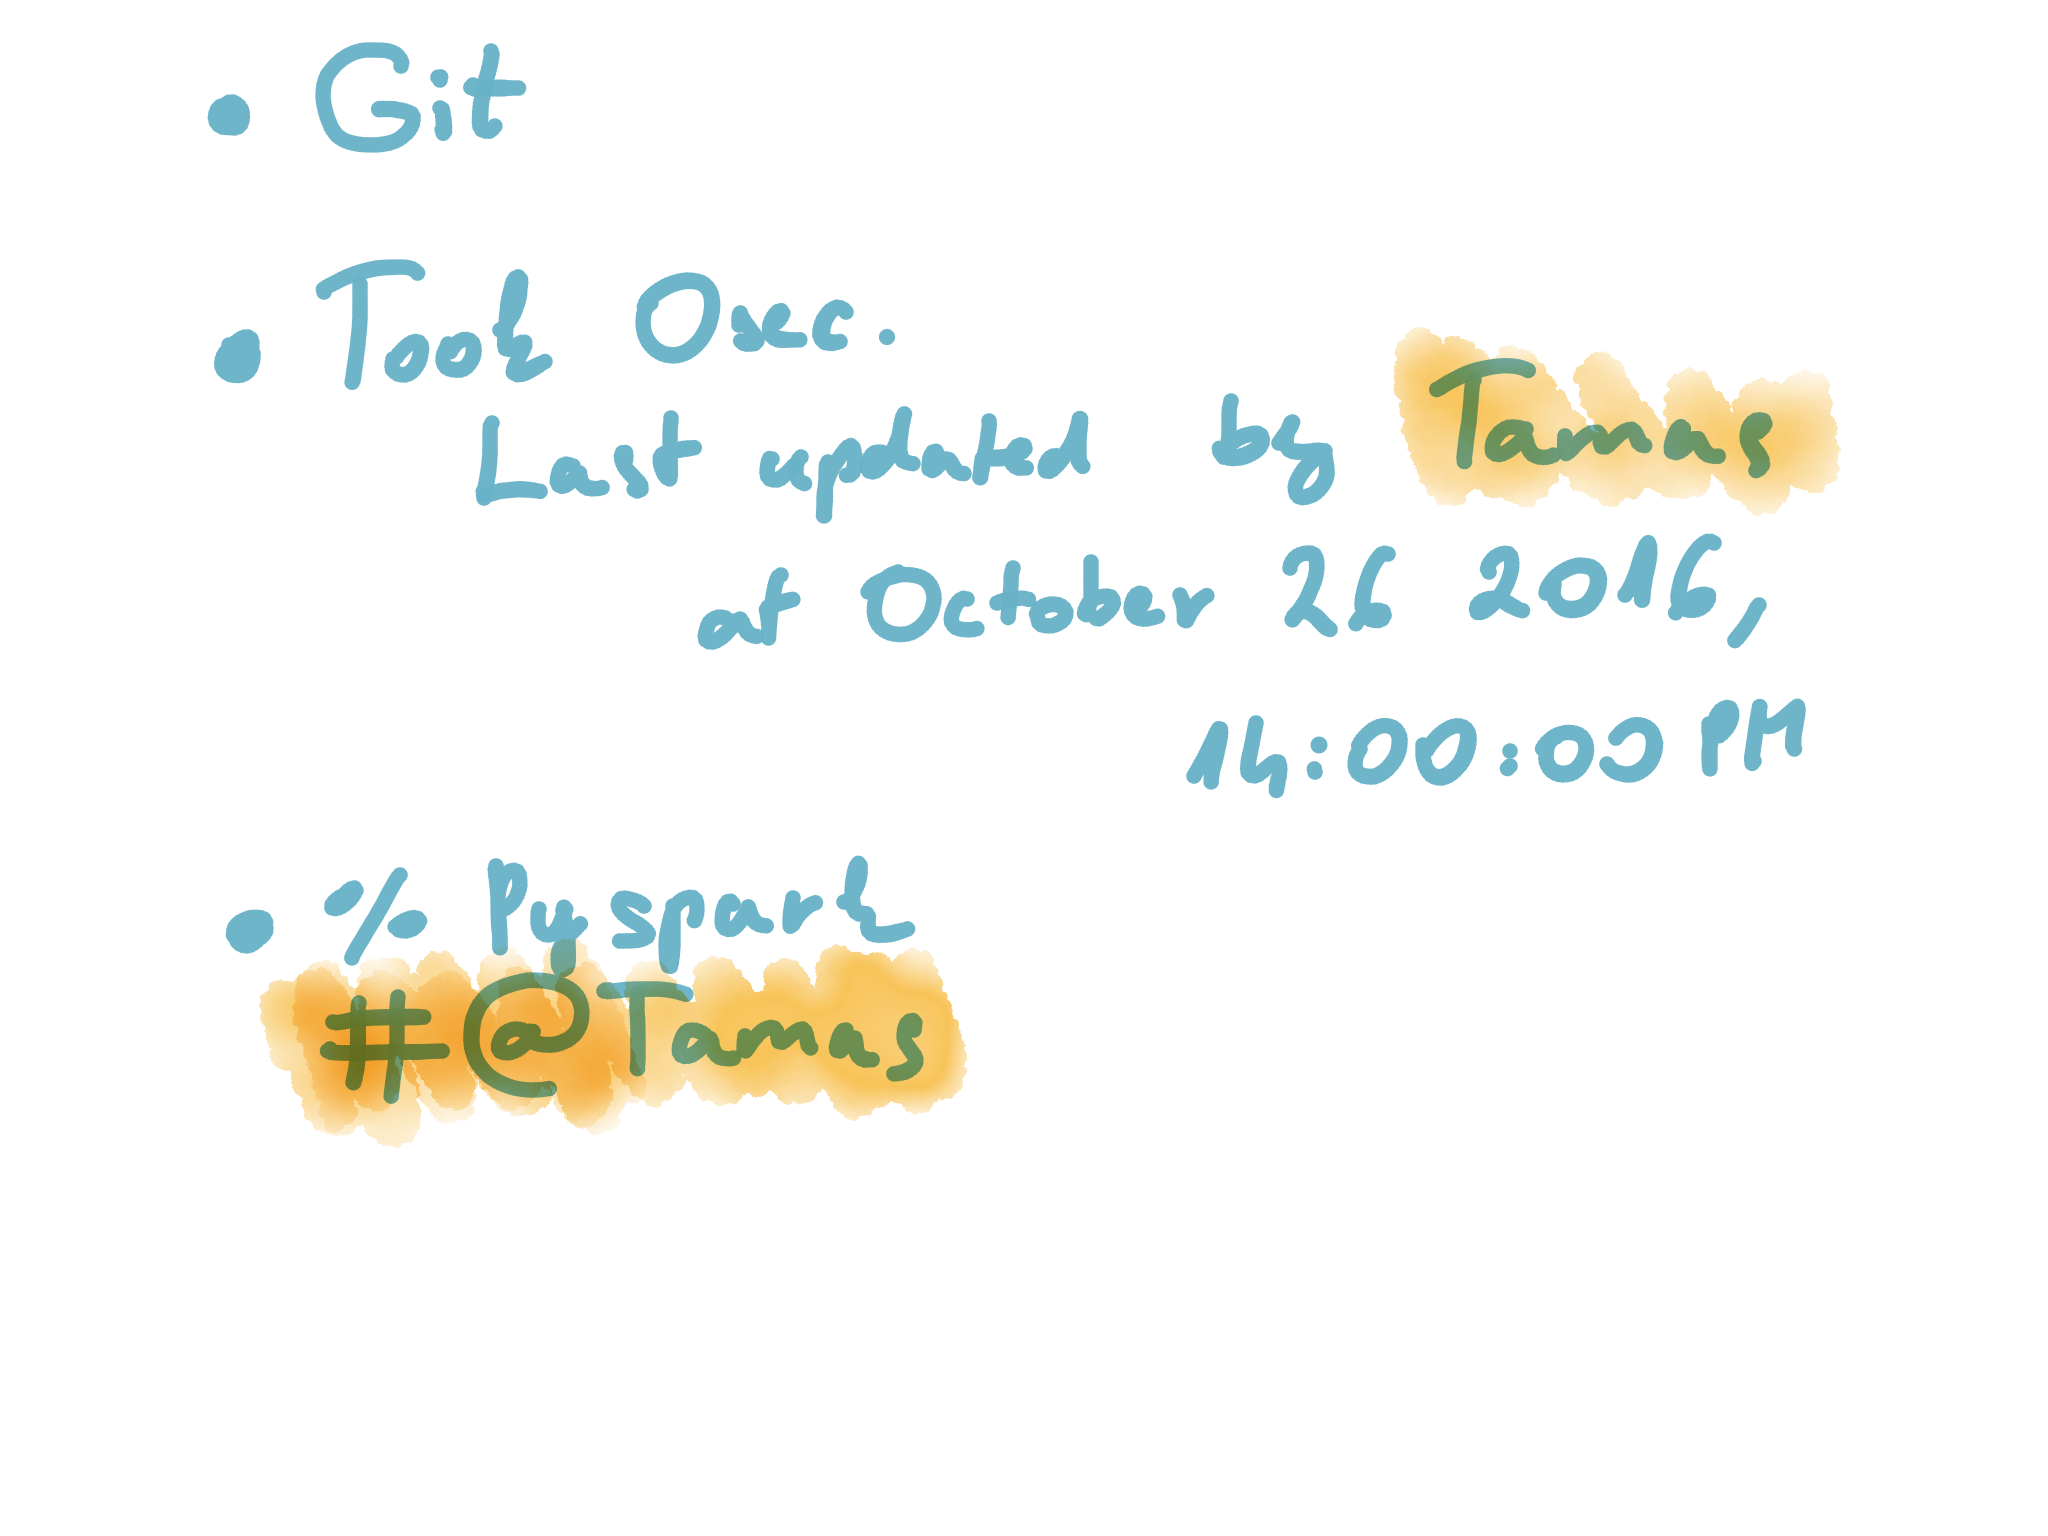 • Git
• Took 0sec.
Last updated by Tamas
at October 26 2016,
14:00:00 PM
• % Pyspark
#@Tamas